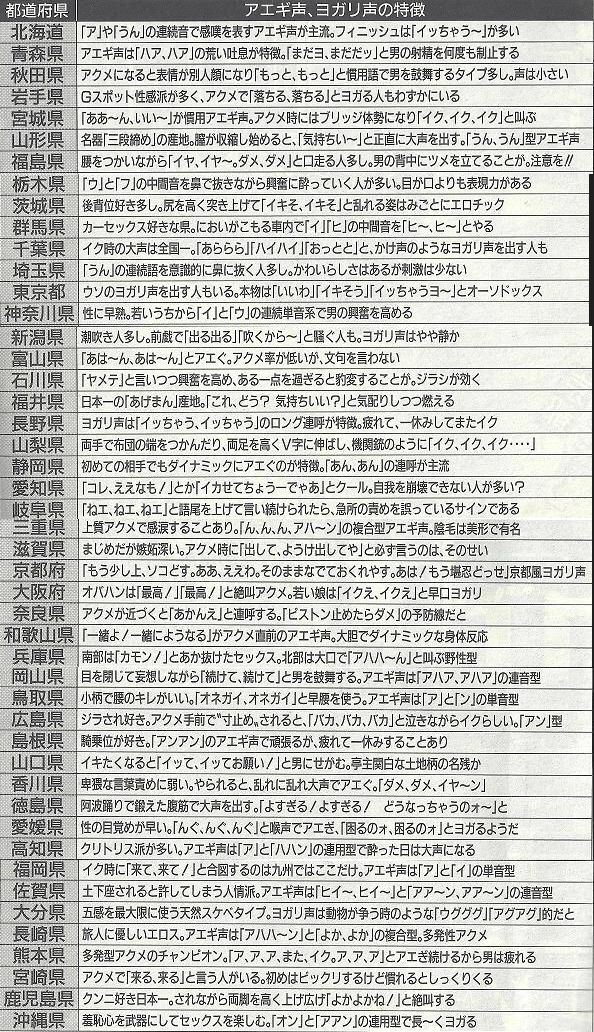 都道府県 アエギ声、ヨガリ声の特徴
北海道 「ア」や「うん」の連続音で感嘆を表すアエギ声が主流。フィニッシュは「イッちゃう〜」が多い
青森県 アエギ声は「ハア、ハア」の荒い吐息が特徴。「まだヨ、まだだッ」と男の射精を何度も制止する
秋田県 アクメになると表情が別人顔になり「もっと、もっと」と慣用語で男を鼓舞するタイプ多し。声は小さい
岩手県 Gスポット性感派が多く、アクメで「落ちる、落ちる」とヨガる人もわずかにいる
宮城県 「ああ〜ん、いい〜」が慣用アエギ声。アクメ時にはブリッジ体勢になり「イク、イク、イク」と叫ぶ
山形県 名器「三段締め」の産地。膣が収縮し始めると、「気持ちい〜」と正直に大声を出す。「うん、うん」型アエギ声
福島県 腰をつかいながら「イヤ、イヤ〜。ダメ、ダメ」と口走る人多し。男の背中にツメを立てることが。注意を!!
栃木県 「ウ」と「フ」の中間音を鼻で抜きながら興奮に酔っていく人が多い。目が口よりも表現力がある
茨城県 後背位好き多し。尻を高く突き上げて「イキそ、イキそ」と乱れる姿はみごとにエロチック
群馬県 カーセックス好きな県。においがこもる車内で「イ」「ヒ」の中間音を「ヒ〜、ヒ〜」とやる
千葉県 イク時の大声は全国一。「あららら」「ハイハイ」「おっとと」と、かけ声のようなヨガリ声を出す人も
埼玉県 「うん」の連続語を意識的に鼻に抜く人多し。かわいらしさはあるが刺激は少ない
東京都 ウソのヨガリ声を出す人もいる。本物は「いいわ」「イキそう」「イッちゃうヨ〜」とオーソドックス
神奈川県 性に早熟。若いうちから「イ」と「ウ」の連続単音系で男の興奮を高める
新潟県 潮吹き人多し。前戯で「出る出る」「吹くから〜」と騒ぐ人も。ヨガリ声はやや静か
富山県 「あは〜ん、あは〜ん」とアエぐ。アクメ率が低いが、文句を言わない
石川県 「ヤメテ」と言いつつ興奮を高め、ある一点を過ぎると豹変することが。ジラシが効く
福井県 日本一の「あげまん」産地。「これ、どう? 気持ちいい?」と気配りしつつ燃える
長野県 ヨガリ声は「イッちゃう、イッちゃう」のロング連呼が特徴。疲れて、一休みしてまたイク
山梨県 両手で布団の端をつかんだり、両足を高くV字に伸ばし、機関銃のように「イク、イク、イク・・・・」
静岡県 初めての相手でもダイナミックにアエぐのが特徴。「あん、あん」の連呼が主流
愛知県 「コレ、ええなも!」とか「イカせてちょうーでゃあ」とクール。自我を崩壊できない人が多い?
岐阜県 「ねエ、ねエ、ねエ」と語尾を上げて言い続けられたら、急所の責めを誤っているサインである
三重県 上質アクメで感涙することあり。「んん、ん、ん、アハ〜ン」の複合型アエギ声。陰毛は美形で有名
滋賀県 まじめだが嫉妬深い。アクメ時に「出して、ようけ出してや」と必す言うのは、そのせい
京都府 「もう少し上、ソコどす。ああ、ええわ。そのままなでておくれやす。あは!もう堪忍どっせ」京都風ヨガリ声
大阪府 オバハンは「最高!」「最高!」と絶叫アクメ。若い娘は「イクえ、イクえ」と早口ヨガリ
奈良県 アクメが近づくと「あかんえ」と連呼する。「ピストン止めたらダメ」の予防線だと
和歌山県 「一緒よ!一緒にようなる」がアクメ直前のアエギ声。大胆でダイナミックな身体反応
兵庫県 南部は「カモン!」とあか抜けたセックス。北部は大口で「アハハ〜ん」と叫ぶ野性型
岡山県 目を閉じて妄想しながら「続けて、続けて」と男を鼓舞する。アエギ声は「アハア、アハア」の連音型
鳥取県 小柄で腰のキレがいい。「オネガイ、オネガイ」と早腰を使う。アエギ声は「ア」と「ン」の単音型
広島県 ジラされ好き。アクメ手前で〝寸止め〟されると、「バカ、バカ、バカ」と泣きながらイクらしい。「アン」型
島根県 騎乗位が好き。「アンアン」のアエギ声で頑張るが、疲れて一休みすることあり
山口県 イキたくなると「イッて、イッてお願い!」と男にせがむ。亭主関白な土地柄の名残か
香川県 卑猥な言葉責めに弱い。やられると、乱れに乱れ大声でアエぐ。「ダメ、ダメ、イヤ〜ン」
徳島県 阿波踊りで鍛えた腹筋で大声を出す。「よすぎる!よすぎる! どうなっちゃうのォ〜」と
愛媛県 性の目覚めが早い。「んぐ、んぐ、んぐ」と喉声でアエぎ、「困るのォ、困るのォ」とヨガるようだ
高知県 クリトリス派が多い。アエギ声は「ア」と「ハハン」の連用型で酔った日は大声になる
福岡県 イク時に「来て、来て!」と合図するのは九州ではここだけ。アエギ声は「ア」と「イ」の単音型
佐賀県 土下座されると許してしまう人情派。アエギ声は「ヒイ〜、ヒイ〜」と「アア〜ン、アア〜ン」の連音型
大分県 五感を最大限に使う天然スケベタイプ。ヨガリ声は動物が争う時のような「ウグググ」「アグアグ」的だと
長崎県 旅人に優しいエロス。アエギ声は「アハハ〜ン」と「よか、よか」の複合型。多発性アクメ
熊本県 多発型アクメのチャンピオン。「ア、ア、ア、また、イク。ア、ア、ア」とアエぎ続けるから男は疲れる
宮崎県 アクメで「来る、来る」と言う人がいる。初めはビックリするけど慣れるとしっくりくる
鹿児島県 クンニ好き日本一。されながら両脚を高く上げ広げ「よかよかね!」と絶叫する
沖縄県 羞恥心を武器にしてセックスを楽しむ。「オン」と「アアン」の連用型で長〜くヨガる